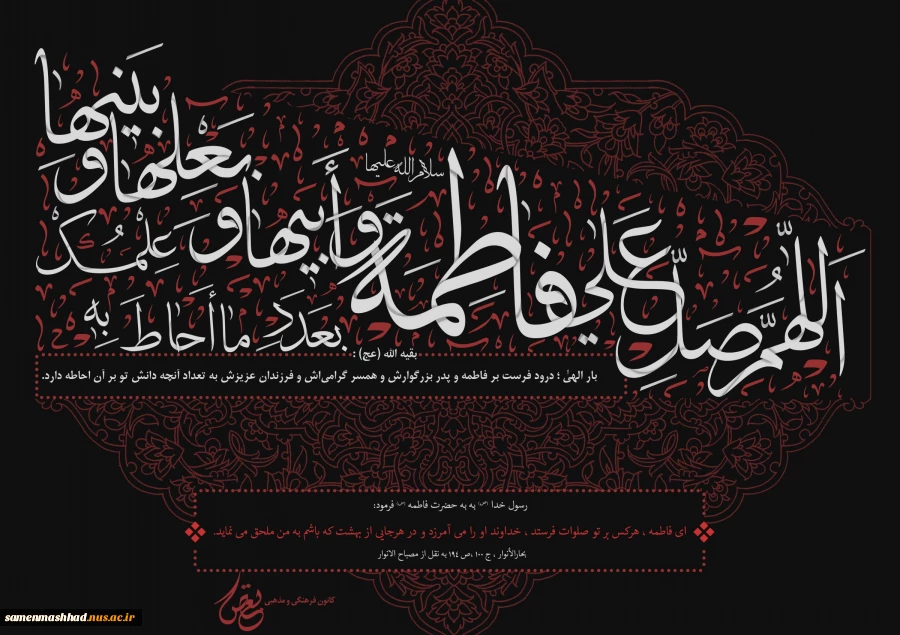 اللّهُمَّ صَلِّ عَلی فاطِمَة وَ أَبیها وَ بَعلِها وَ بَنیها
سلام الله علیها
بِعَدَدِ ما أَحاطَ بِه عِلمُک
بقیه الله (عج) :
بار الهیٰ ؛ درود فرست بر فاطمه و پدر بزرگوارش و همسر گرامی‌اش و فرزندان عزیزش به تعداد آنچه دانش تو بر آن احاطه دارد.
رسول خدا (ص) به به حضرت فاطمه (س) فرمود:
ای فاطمه ، هرکس بر تو صلوات فرستد ، خداوند او را می آمرزد و در هرجایی از بهشت که باشم به من ملحق می نماید.
بحارالأنوار ، ج ۱۰۰ ،ص ۱۹۴ به نقل از مصباح الانوار
کانون فرهنگی و مذهبی
samenmashhad.nus.ac.ir